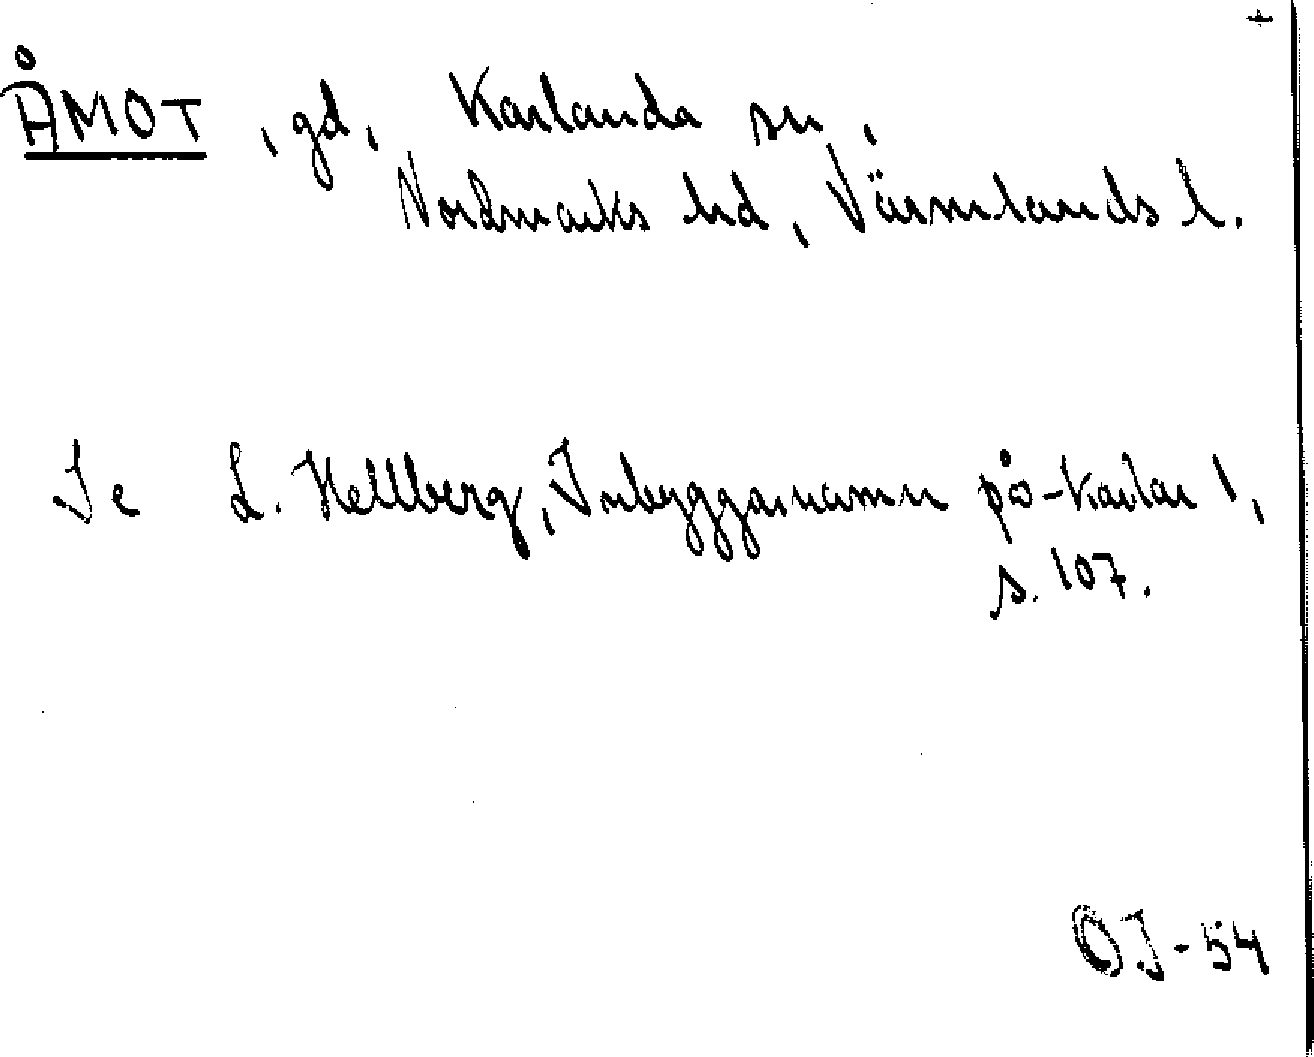 +
ÅMOT, gd, Karlanda sn,
Nordmarks hd, Värmlands l.
Se L. Hellberg, Inbyggarnamn på -karlar 1,
s. 107.
OJ-54